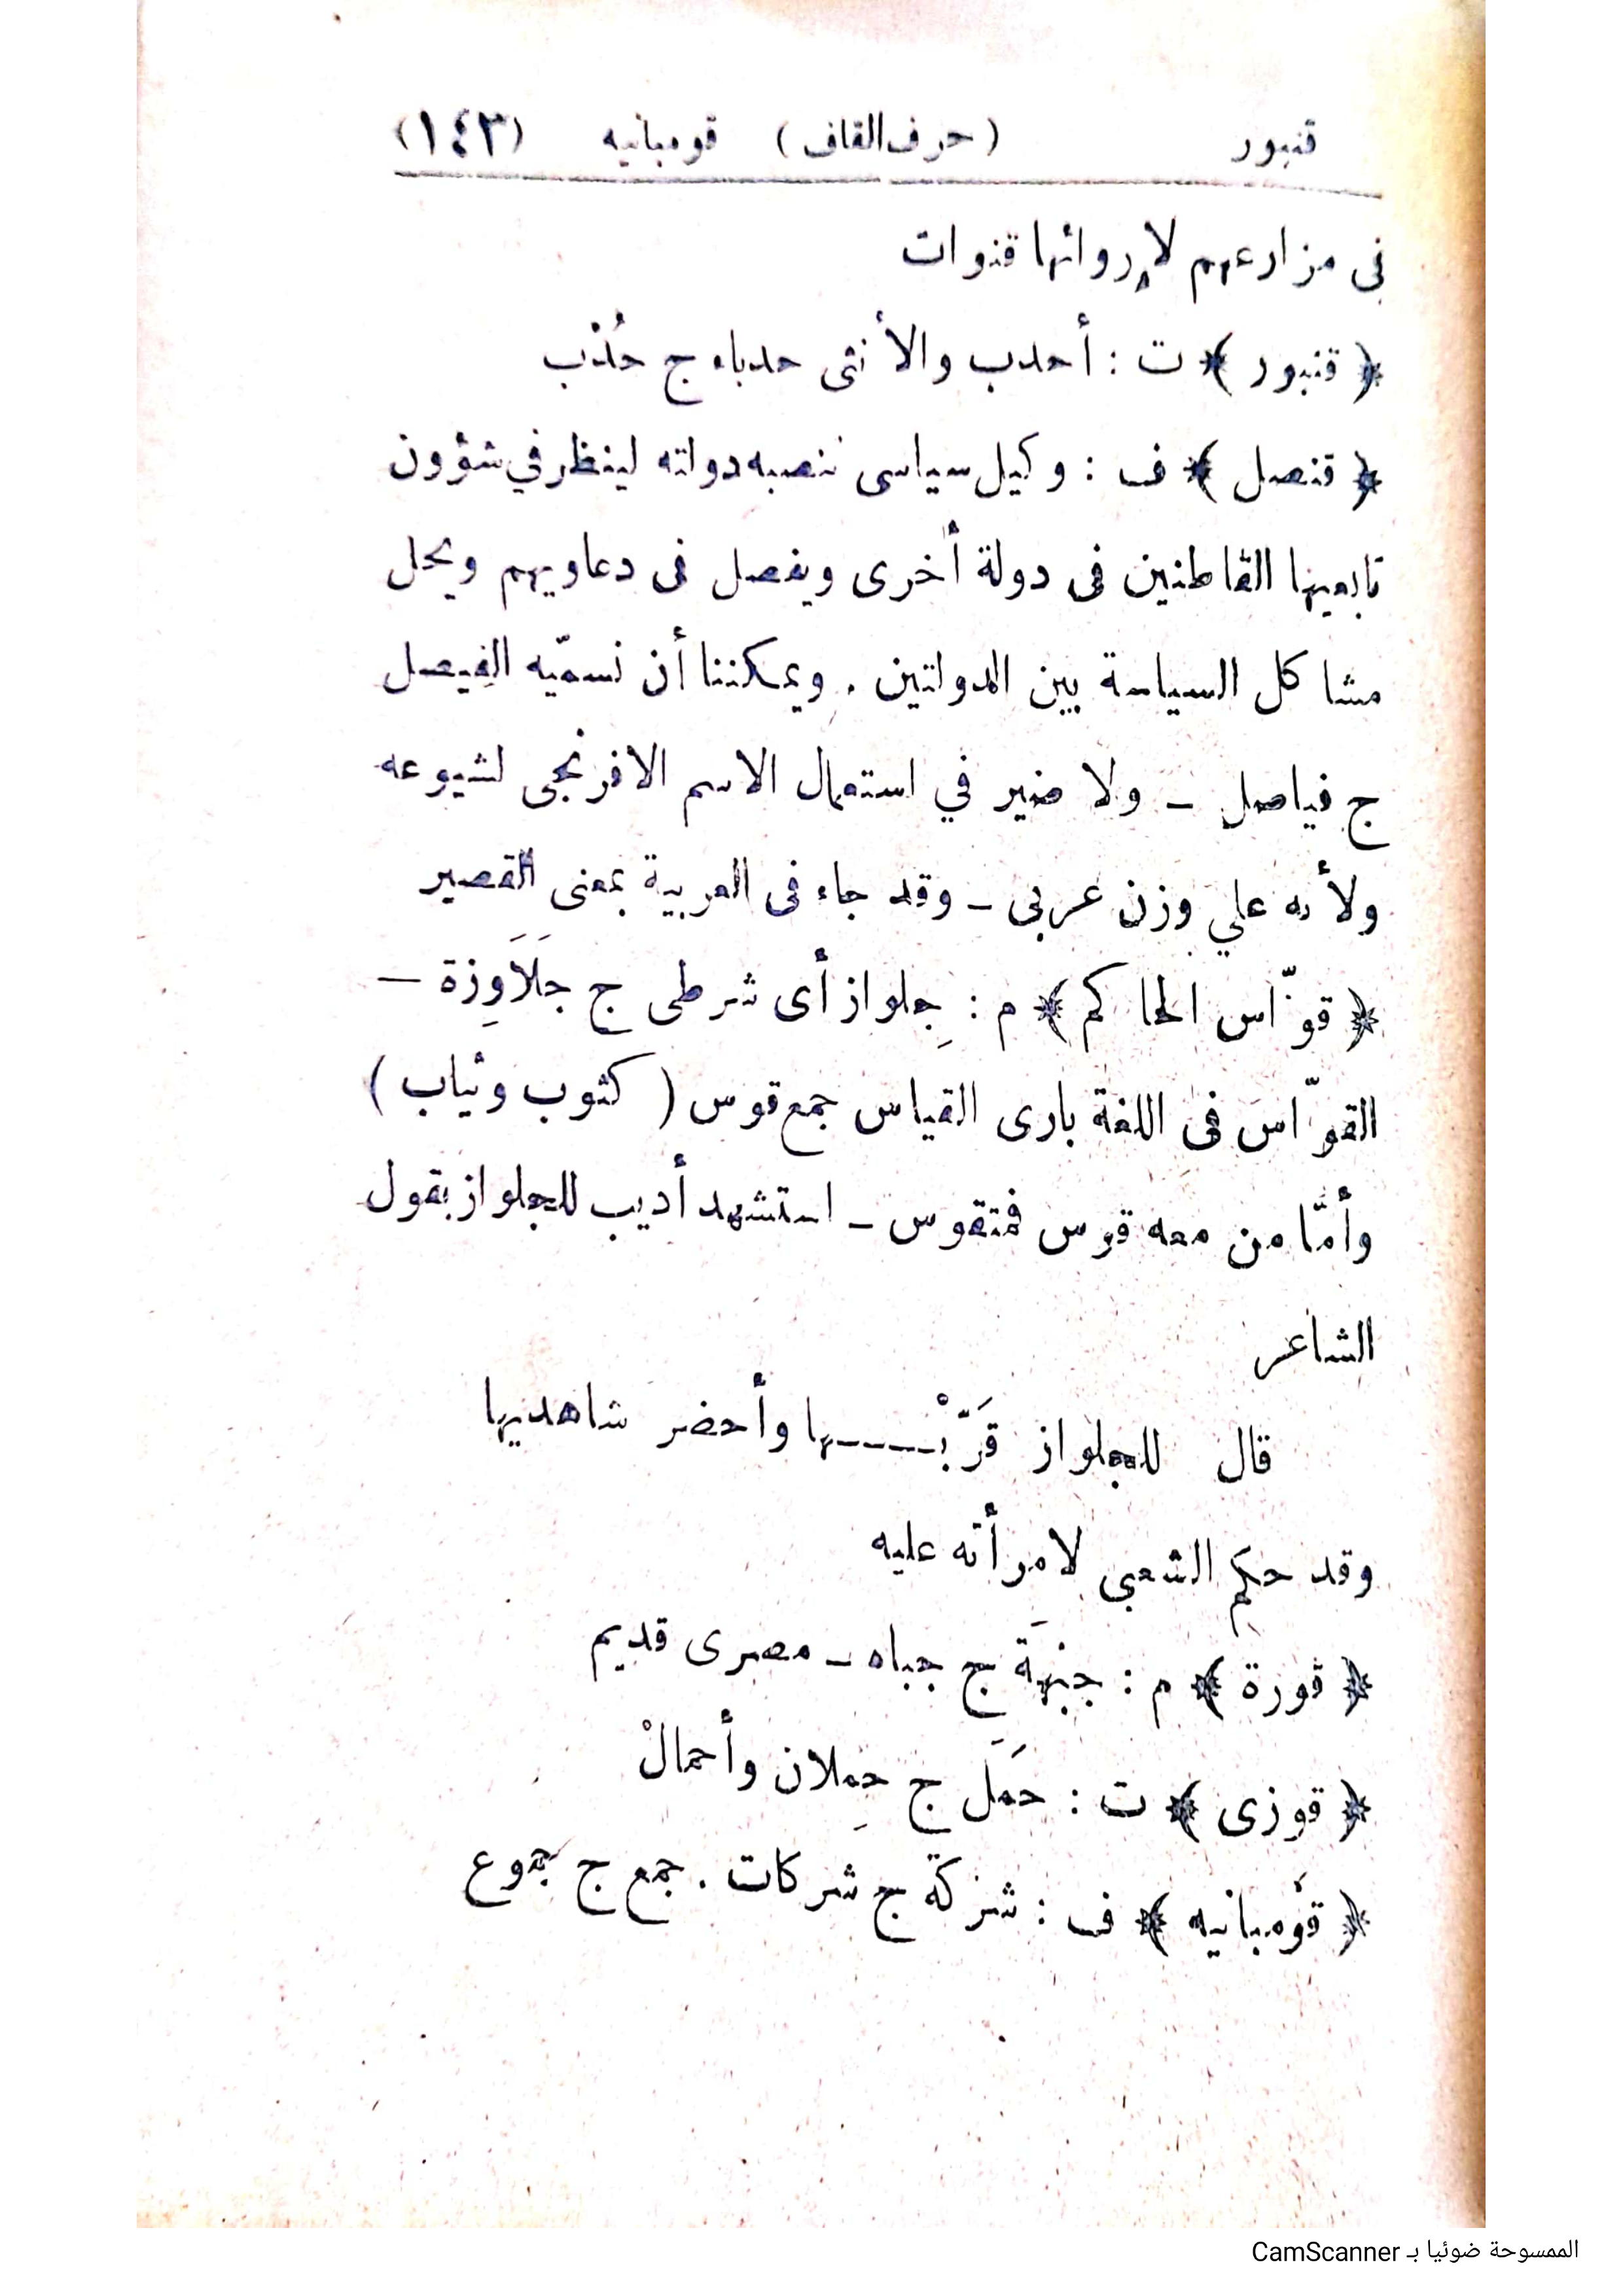 قنبور (حرف القاف) قومبانيه (١٤٣)
فى مزارعهم لإروائها قنوات
﴿ قنبور ﴾ ت : أحدب والأنثى حدباء ج حُدْب
﴿ قنصل ﴾ ف : وكيل سياسى تنصبه دولته لينظر في شؤون
تابعيها القاطنين فى دولة أخرى ويفصل فى دعاويهم ويحل
مشاكل السياسة بين الدولتين . ويمكننا أن نسمّيه الفيصل
ج فياصل – ولا ضير في استعمال الاسم الافرنجى لشيوعه
ولأنه علي وزن عربى – وقد جاء فى العربية بمعنى القصير
﴿ قوّاس الحاكم ﴾ م : جِلواز أى شرطى ج جَلَاوِزة –
القوّاس فى اللغة بارى القياس جمع قوس ( كثوب وثياب )
وأمّا من معه قوس فمتقوس – استشهد أديب للجلواز بقول
الشاعر
قال للجلواز قَرّبْـــها وأحضر شاهديها
وقد حكَم الشعبى لامرأته عليه
﴿ قورة ﴾ م : جبْهَة ج جباه – مصرى قديم
﴿ قوزى ﴾ ت : حمَل ج حِملان وأحمالْ
﴿ قوْمبانيه ﴾ ف : شركة ج شركات . جمع ج جموع
الممسوحة ضوئيا بـ CamScanner